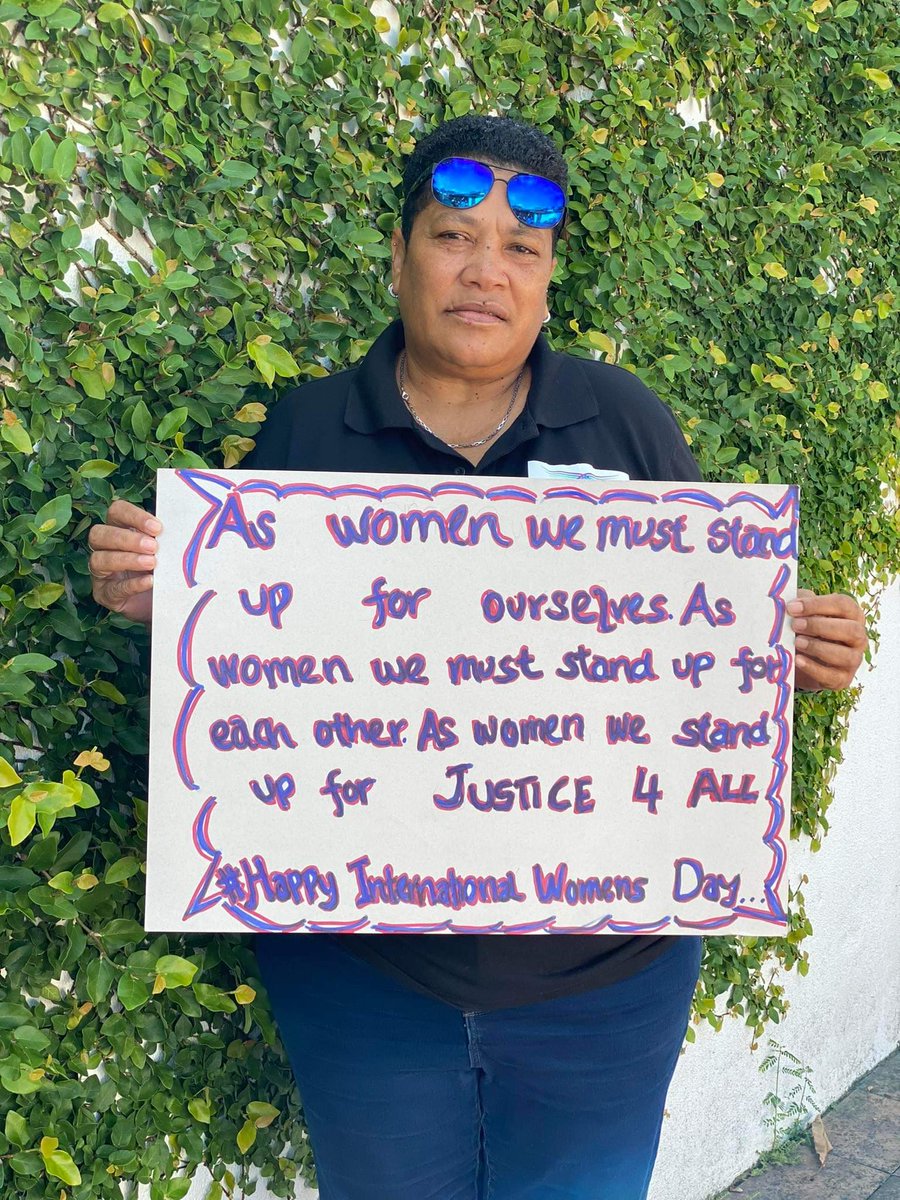 As women we must stand
up for ourselves. As
women we must stand up for
each other. As women we stand
up for JUSTICE 4 ALL
#Happy International Womens Day...